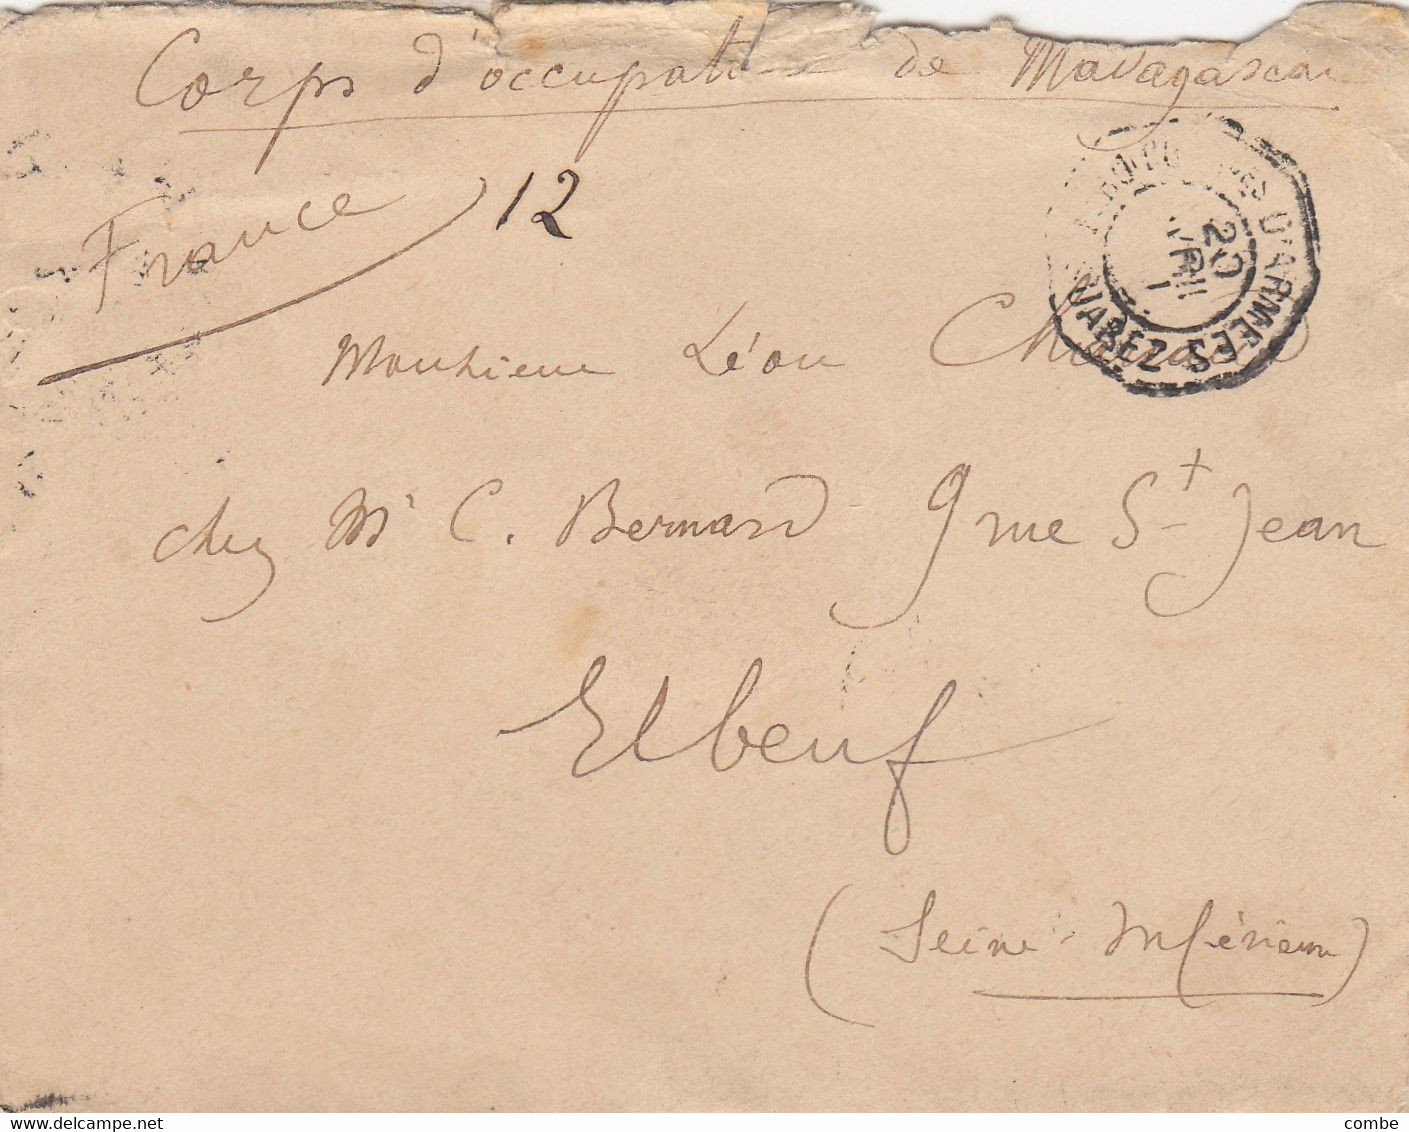 Corps d'occupation de Madagascar
France
12
20
AVRIL
D'ARMEES
Monsieur Léon
chez Mr C. Bernard 9 rue St Jean
Elbeuf
(Seine-Inférieure)
www.delcampe.net
combe